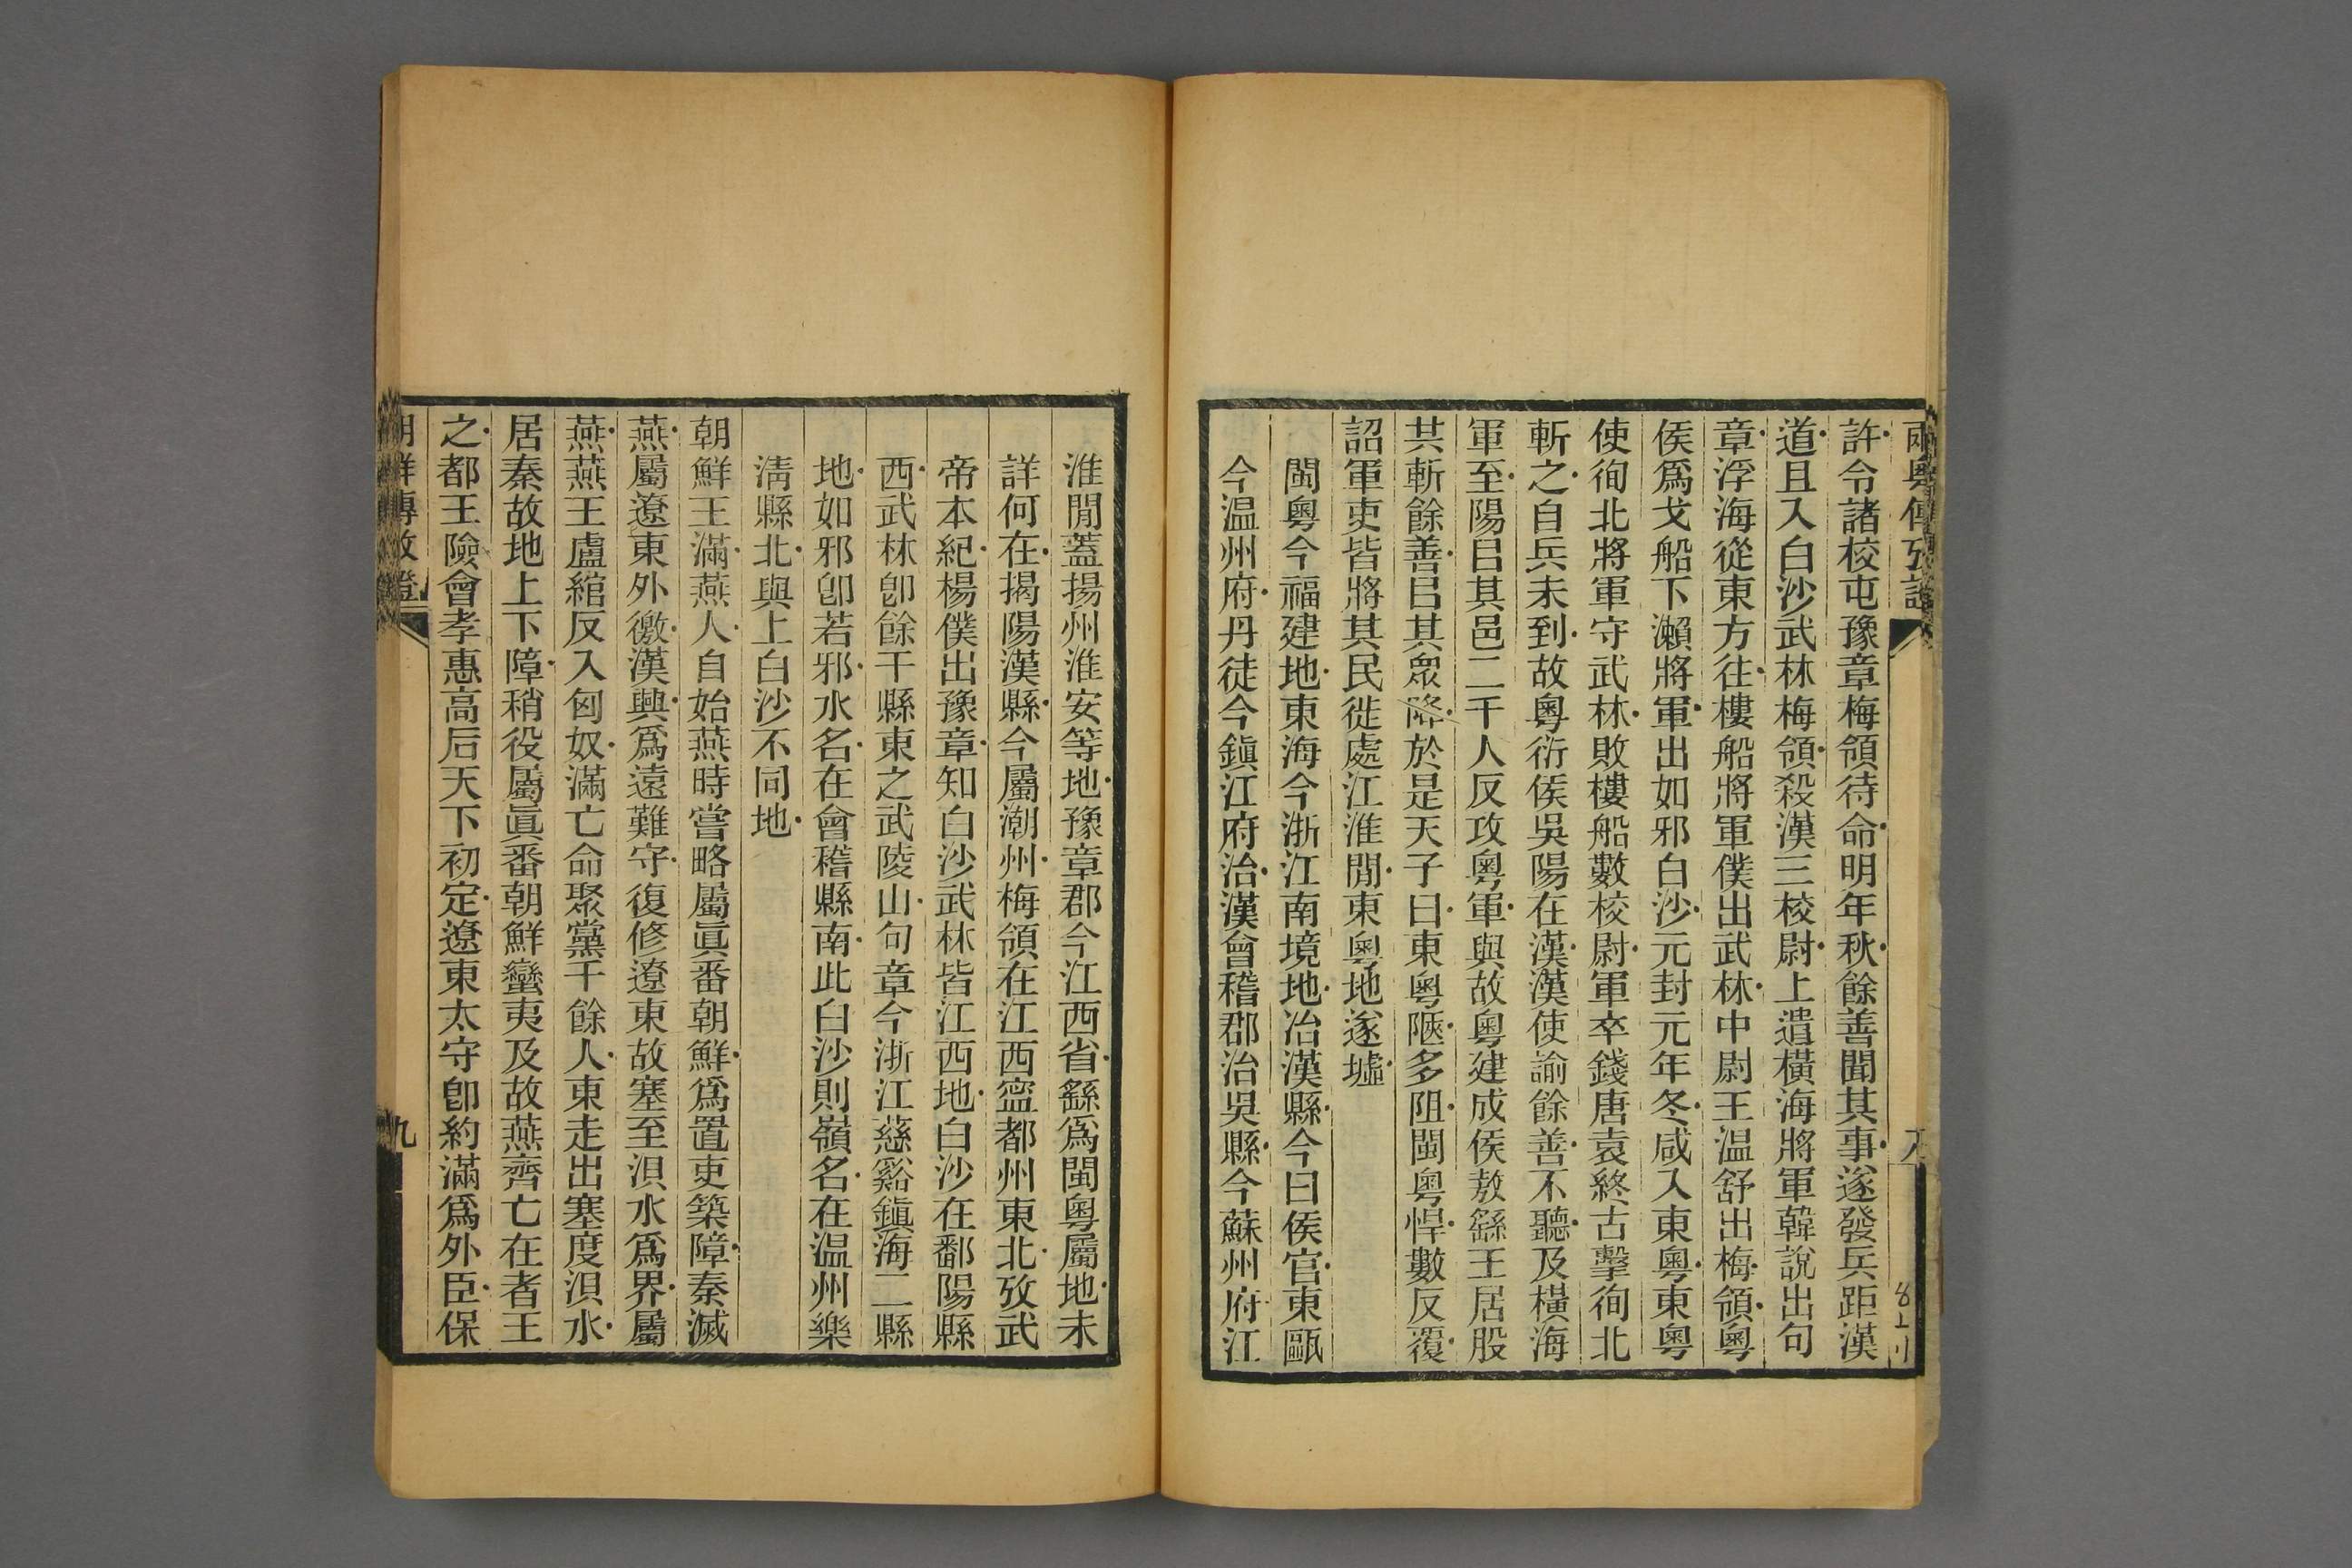 兩粵傳攷證
八
許令諸校屯豫章梅領待命明年秋餘善聞其事遂發兵距漢
道且入白沙武林梅領殺漢三校尉上遣橫海將軍韓說出句
章浮海從東方往樓船將軍僕出武林中尉王温舒出梅領粵
侯爲戈船下瀨將軍出如邪白沙元封元年冬咸入東粵東粵
使徇北將軍守武林敗樓船數校尉軍卒錢唐袁終古擊徇北
斬之自兵未到故粵衍侯吳陽在漢漢使諭餘善不聽及橫海
軍至陽㠯其邑二千人反攻粵軍與故粵建成侯敖繇王居股
共斬餘善㠯其眾降於是天子曰東粵陿多阻閩粵悍數反覆
詔軍吏皆將其民徙處江淮閒東粵地遂墟
閩粵今福建地東海今浙江南境地冶漢縣今曰侯官東甌
今温州府丹徒今鎭江府治漢會稽郡治吳縣今蘇州府江
淮閒蓋揚州淮安等地豫章郡今江西省繇爲閩粵屬地未
詳何在揭陽漢縣今屬潮州梅領在江西寍都州東北攷武
帝本紀楊僕出豫章知白沙武林皆江西地白沙在鄱陽縣
西武林卽餘干縣東之武陵山句章今浙江慈谿鎭海二縣
地如邪卽若邪水名在會稽縣南此白沙則嶺名在温州樂
淸縣北與上白沙不同地
朝鮮王滿燕人自始燕時嘗略屬眞番朝鮮爲置吏築障秦滅
燕屬遼東外徼漢興爲遠難守復修遼東故塞至浿水爲界屬
燕燕王盧綰反入匈奴滿亡命聚黨千餘人東走出塞度浿水
居秦故地上下障稍役屬眞番朝鮮蠻夷及故燕齊亡在者王
之都王險會孝惠高后天下初定遼東太守卽約滿爲外臣保
朝鮮傳攷證
九